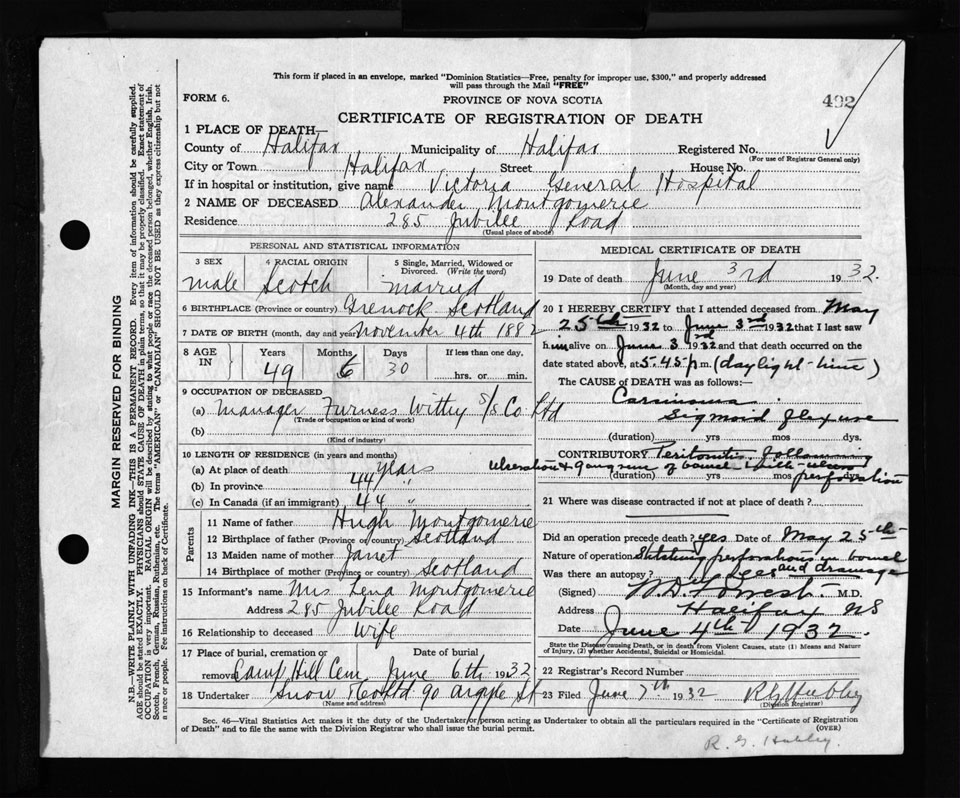 This form if placed in an envelope, marked "Dominion Statistics—Free, penalty for improper use, $300," and properly addressed
will pass through the Mail "FREE"
FORM 6.
PROVINCE OF NOVA SCOTIA
492
CERTIFICATE OF REGISTRATION OF DEATH
1 PLACE OF DEATH—
County of Halifax Municipality of Halifax Registered No.
(For use of Registrar General only)
City or Town Halifax Street House No.
If in hospital or institution, give name Victoria General Hospital
2 NAME OF DECEASED Alexander Montgomerie
Residence 285 Jubilee Road
(Usual place of abode)
PERSONAL AND STATISTICAL INFORMATION
3 SEX 4 RACIAL ORIGIN 5 Single, Married, Widowed or
Divorced. (Write the word)
male Scotch married
6 BIRTHPLACE (Province or country) Grenock Scotland
7 DATE OF BIRTH (month, day and year) November 4th 1882
8 AGE IN Years Months Days If less than one day,
49 6 30 hrs. or min.
9 OCCUPATION OF DECEASED
(a) Manager Furness Withy S/S Co Ltd
(Trade or occupation or kind of work)
(b)
(Kind of industry)
10 LENGTH OF RESIDENCE (in years and months)
(a) At place of death years
(b) In province 44 "
(c) In Canada (if an immigrant) 44 "
Parents
11 Name of father Hugh Montgomerie
12 Birthplace of father (Province or country) Scotland
13 Maiden name of mother Janet
14 Birthplace of mother (Province or country) Scotland
15 Informant's name Mrs Lena Montgomerie
Address 285 Jubilee Road
16 Relationship to deceased Wife
17 Place of burial, cremation or Date of burial
removal Camp Hill Cem June 6th 1932
18 Undertaker Snow & Co Ltd 90 Argyle St
(Name and address)
MEDICAL CERTIFICATE OF DEATH
19 Date of death June 3rd 1932.
(Month, day and year)
20 I HEREBY CERTIFY that I attended deceased from May
25th 1932 to June 3rd 1932 that I last saw
him alive on June 3rd 1932 and that death occurred on the
date stated above, at 5.45 p m. (daylight-time)
The CAUSE OF DEATH was as follows:—
Carcinoma
Sigmoid flexure
(duration) yrs mos dys.
CONTRIBUTORY Peritonitis following
ulceration & gangrene of bowel with
(duration) yrs mos dys.
perforation
21 Where was disease contracted if not at place of death?
Did an operation precede death? yes Date of May 25th
Nature of operation perforation in bowel
and drainage
Was there an autopsy?
(Signed) W.D. Forrest M.D.
Address Halifax NS
Date June 4th 1932.
State the Disease causing Death, or in death from Violent Causes, state (1) Means and Nature
of Injury, (2) whether Accidental, Suicidal or Homicidal.
22 Registrar's Record Number
23 Filed June 7th 1932
(Division Registrar)
Sec. 46—Vital Statistics Act makes it the duty of the Undertaker or person acting as Undertaker to obtain all the particulars required in the "Certificate of Registration
of Death" and to file the same with the Division Registrar who shall issue the burial permit. (OVER)
MARGIN RESERVED FOR BINDING
N.B.—WRITE PLAINLY WITH UNFADING INK—THIS IS A PERMANENT RECORD. Every item of information should be carefully supplied.
AGE should be stated EXACTLY. PHYSICIANS should STATE CAUSE OF DEATH in plain terms, so that it may be properly classified. Exact statement of
OCCUPATION is very important. RACIAL ORIGIN will be described by stating to what people or race the deceased person belonged, whether English, Irish,
Scotch, French, German, Russian, Ruthenian, etc. The terms "AMERICAN" or "CANADIAN" SHOULD NOT BE USED as they express citizenship but not
a race or people. Fee instructions on back of Certificate.